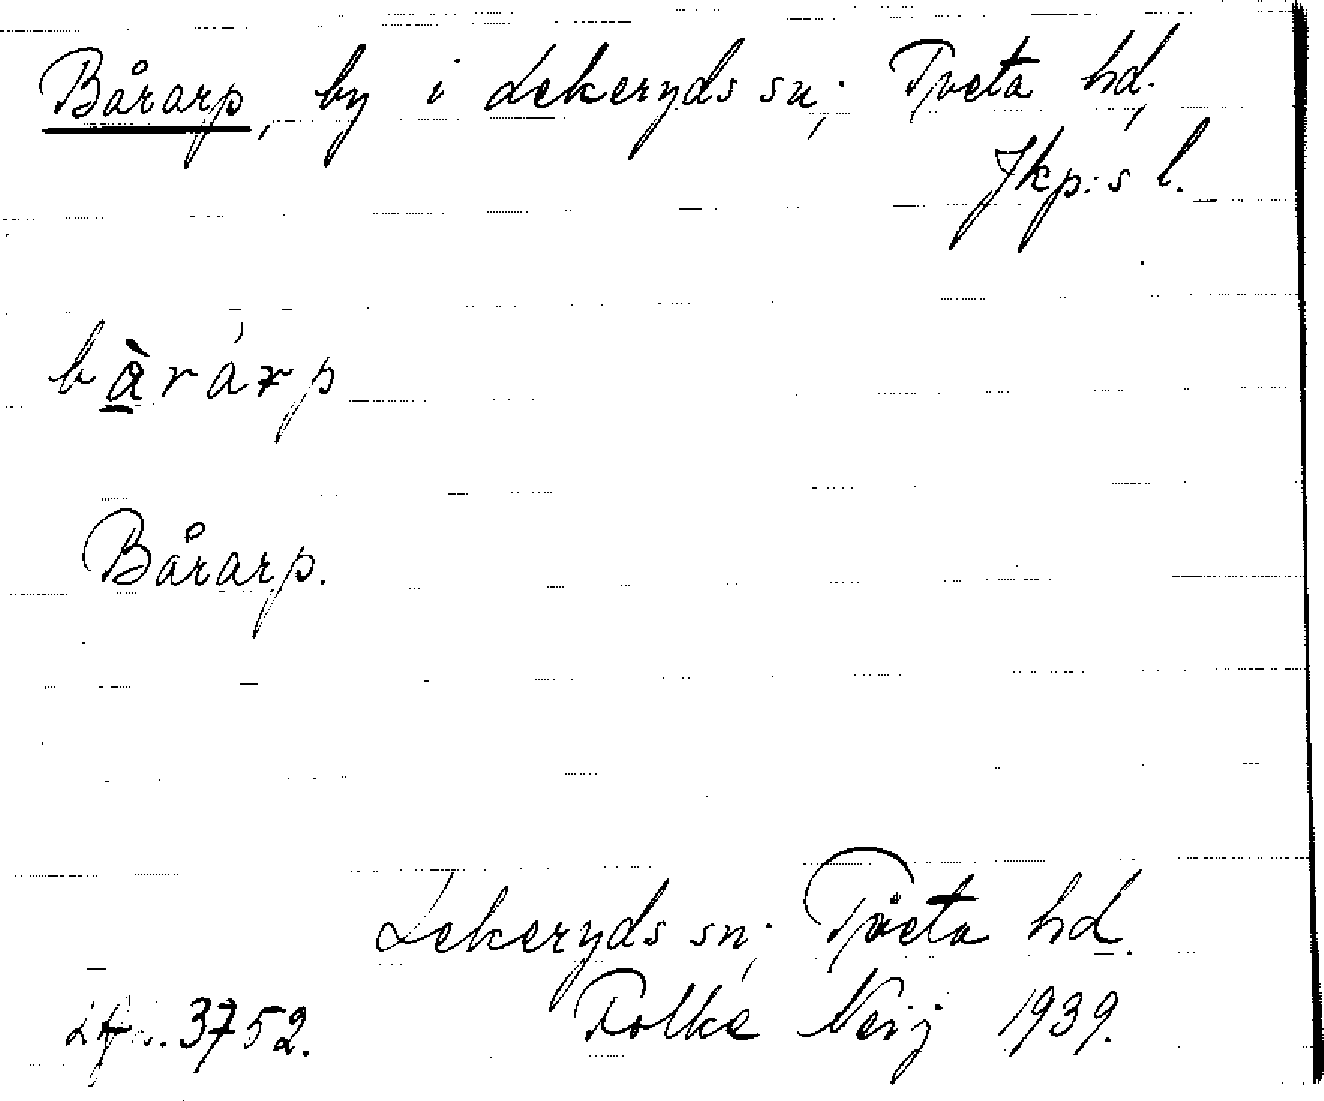 Bårarp, by i Lekeryds sn; Tveta hd;
Jkp:s l.
bàrárp
Bårarp.
Lekeryds sn; Tveta hd.
3752. Folke Neij 1939.